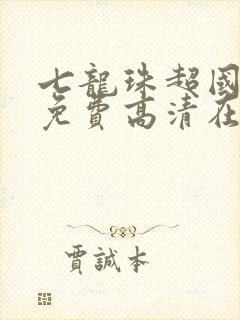 七龍珠超國
免費高清在
賈誠本